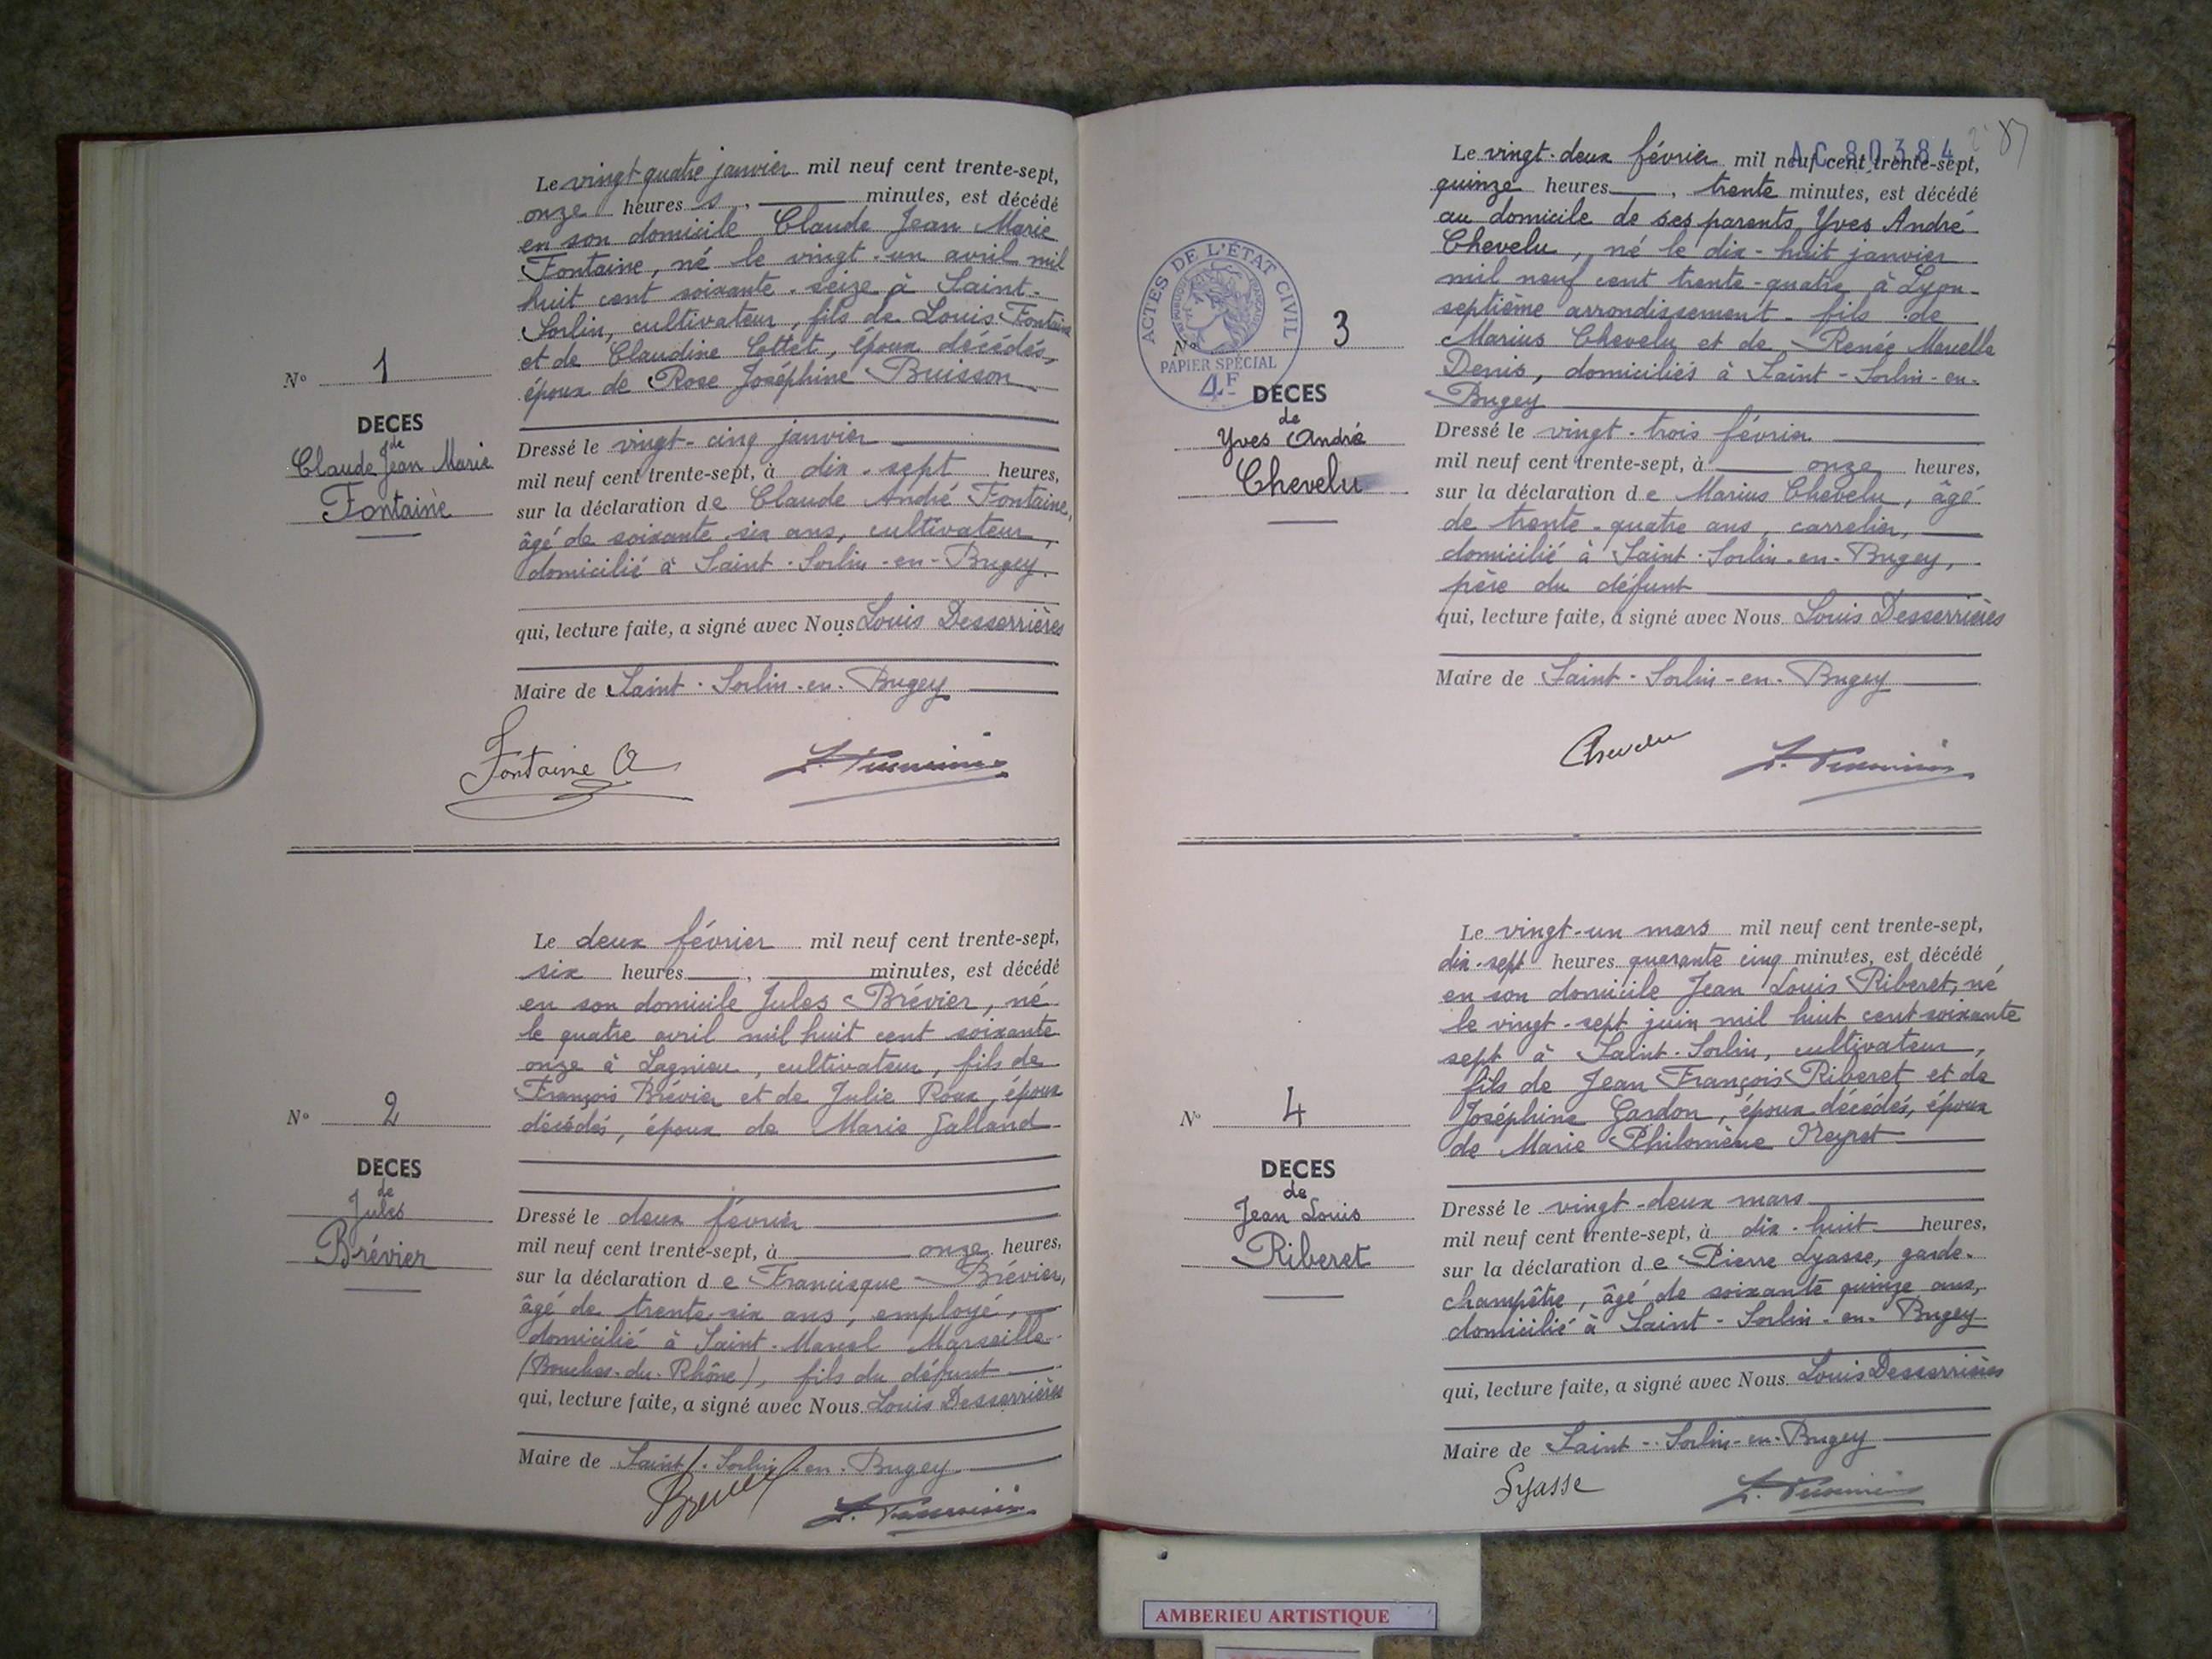 Le vingt-quatre janvier mil neuf cent trente-sept,
onze heures s, minutes, est décédé
en son domicile Claude Jean Marie
Fontaine, né le vingt-un avril mil
huit cent soixante-seize à Saint-
Sorlin, cultivateur, fils de Louis Fontaine
et de Claudine Cottet, époux décédés,
époux de Rose Joséphine Buisson
N° 1
DECES
de
Claude Jean Marie
Fontaine
Dressé le vingt-cinq janvier
mil neuf cent trente-sept, à dix-sept heures,
sur la déclaration de Claude André Fontaine,
âgé de soixante six ans, cultivateur,
domicilié à Saint-Sorlin-en-Bugey.
qui, lecture faite, a signé avec Nous Louis Desserrières
Maire de Saint-Sorlin-en-Bugey
Fontaine
Le deux février mil neuf cent trente-sept,
six heures, minutes, est décédé
en son domicile Jules Brévier, né
le quatre avril mil huit cent soixante
onze à Lagnieu, cultivateur, fils de
François Brévier et de Julie Roux, époux
décédés, époux de Marie Galland
N° 2
DECES
de
Jules
Brévier
Dressé le deux février
mil neuf cent trente-sept, à onze heures,
sur la déclaration de Francisque Brévier,
âgé de trente six ans, employé,
domicilié à Saint-Marcel Marseille
(Bouches-du-Rhône), fils du défunt
qui, lecture faite, a signé avec Nous Louis Desserrières
Maire de Saint-Sorlin-en-Bugey
AC 80384
87
Le vingt-deux février mil neuf cent trente-sept,
quinze heures, trente minutes, est décédé
au domicile de ses parents Yves André
Chevelu, né le dix-huit janvier
mil neuf cent trente-quatre à Lyon-
septième arrondissement- fils de
Marius Chevelu et de Renée
Denis, domiciliés à Saint-Sorlin-en-
Bugey
ACTES DE L'ÉTAT CIVIL
PAPIER SPÉCIAL
4F
N° 3
DECES
de
Yves André
Chevelu
Dressé le vingt-trois février
mil neuf cent trente-sept, à onze heures,
sur la déclaration de Marius Chevelu, âgé
de trente-quatre ans, carrelier,
domicilié à Saint-Sorlin-en-Bugey,
père du défunt
qui, lecture faite, a signé avec Nous Louis Desserrières
Maire de Saint-Sorlin-en-Bugey
Chevelu
Le vingt-un mars mil neuf cent trente-sept,
dix-sept heures quarante cinq minutes, est décédé
en son domicile Jean Louis Riberet, né
le vingt-sept juin mil huit cent soixante
sept à Saint-Sorlin, cultivateur,
fils de Jean François Riberet et de
Joséphine Gardon, époux décédés, époux
de Marie Philomène
N° 4
DECES
de
Jean Louis
Riberet
Dressé le vingt-deux mars
mil neuf cent trente-sept, à dix-huit heures,
sur la déclaration de Pierre Lyasse, garde-
champêtre, âgé de soixante quinze ans,
domicilié à Saint-Sorlin-en-Bugey
qui, lecture faite, a signé avec Nous Louis Desserrières
Maire de Saint-Sorlin-en-Bugey
Lyasse
AMBERIEU ARTISTIQUE